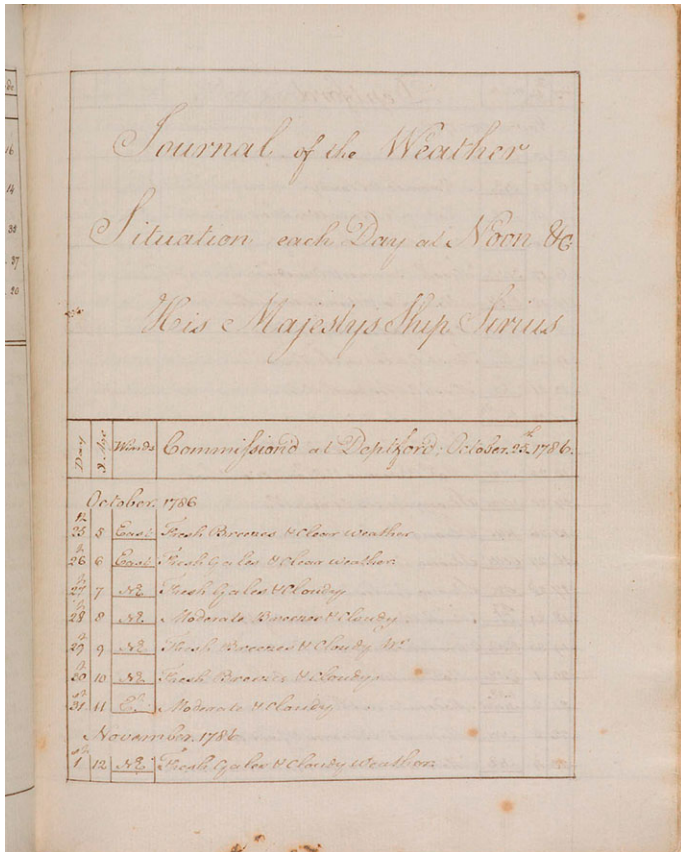 Journal of the Weather
Situation each Day at Noon &c
His Majestys Ship Sirius
Day Winds Commission'd at Deptford, October. 25th. 1786.
October. 1786
25th 5 East Fresh Breezes & Clear Weather
26th 6 East Fresh Gales & Clear Weather
27th 7 NE Fresh Gales & Cloudy
28th 8 NE Moderate Breezes & Cloudy
29th 9 NE Fresh Breezes & Cloudy Wr
30th 10 NE Fresh Breezes & Cloudy
31st 11 Moderate & Cloudy
November. 1786
1st 12 NE Fresh Gales & Cloudy Weather.
16
14
38
37
20